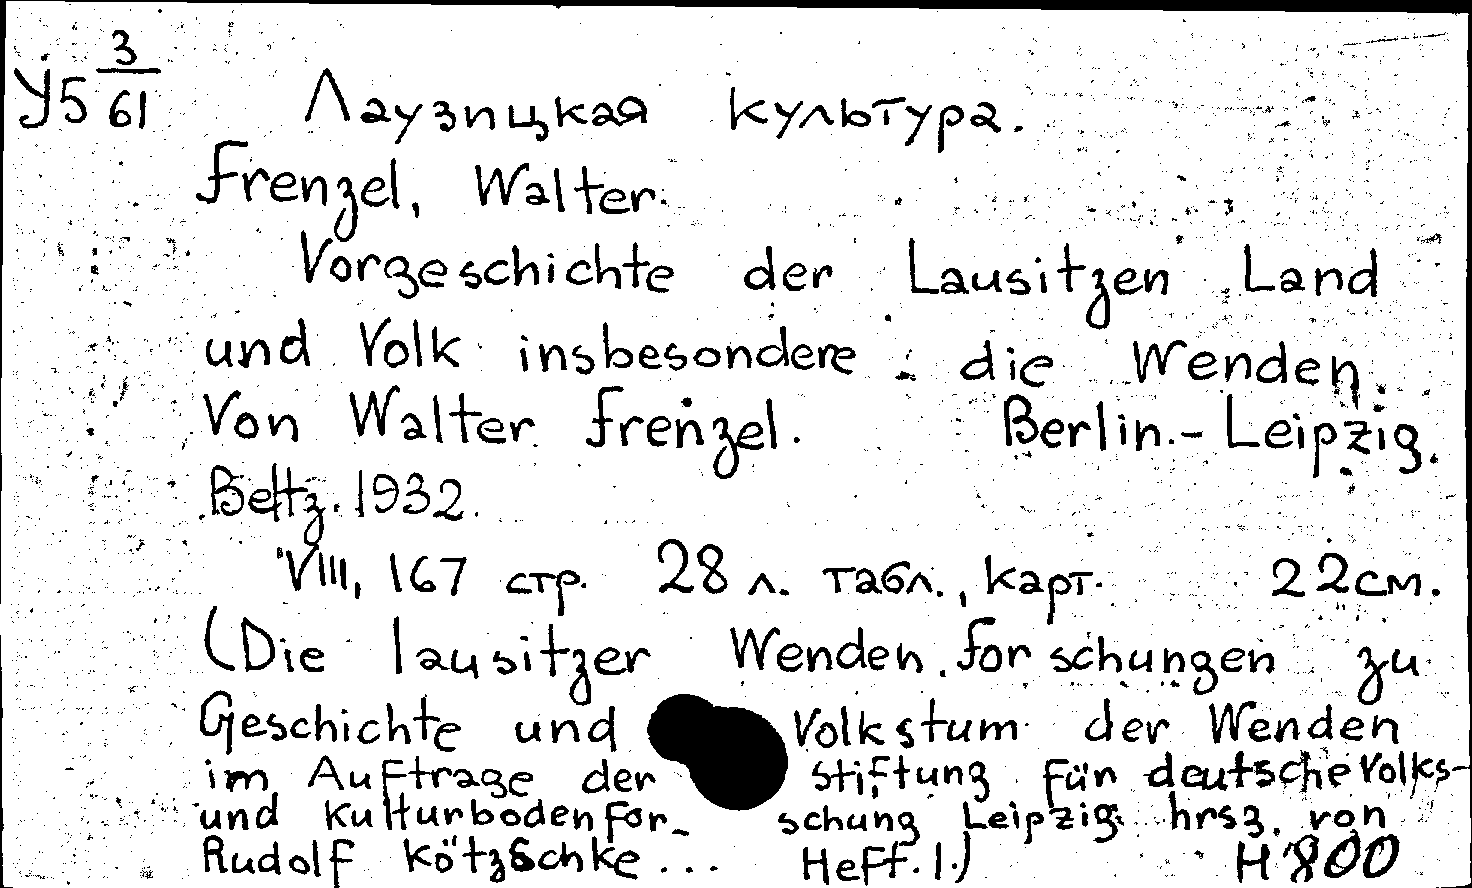 У5 3/61
Лаузицкая культура.
Frenzel, Walter.
Vorgeschichte der Lausitzen Land
und Volk insbesondere die Wenden.
Von Walter Frenzel. Berlin.- Leipzig.
Beltz. 1932.
VIII, 167 стр. 28 л. табл., карт. 22см.
(Die lausitzer Wenden. Forschungen zu
Geschichte und Volkstum der Wenden
im Auftrage der Stiftung für deutsche Volks-
und Kulturbodenfor- schung Leipzig hrsg. von
Rudolf Kötzschke... Heff. 1.) H 800